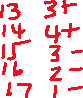 13 3+
14 4+
15 3-
16 2-
17 1-